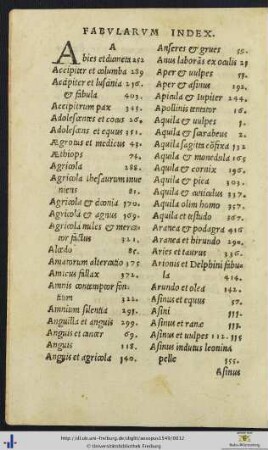 FABVLARVM INDEX.
A
Abies et dumeta 252
Accipiter et columba 289
Accipiter et luscinia 236.
& fabula 403.
Accipitrum pax 345.
Adolescentes et cocus 26.
Adolescens et equus 351.
Aegrotus et medicus 43.
Aethiops 76.
Agricola 288.
Agricola thesaurum inue
niens 81.
Agricola & ciconia 370.
Agricola & agnus 369.
Agricola miles & merca
tor factus 321.
Alcedo 85.
Amatorum altercatio 375
Amicus fallax 372.
Amnis contemptor fon
tium 322.
Amnium silentia 293.
Anguilla et anguis 299.
Anguis et cancer 69.
Anguis 118.
Anguis et agricola 140.
Anseres & grues 55.
Anus laborans ex oculis 23
Aper & uulpes 13.
Aper & asinus 192.
Apicula & Iupiter 244.
Apollinis tentator 16.
Aquila & uulpes 1.
Aquila & scarabeus 2.
Aquila sagitta cōfixa 132
Aquila & monedula 165
Aquila & cornix 196.
Aquila & pica 303.
Aquila & cuniculus 337.
Aquila olim homo 357.
Aquila et testudo 367.
Aranea & podagra 194.
Aranea et hirundo 290.
Aries et taurus 336.
Arionis et Delphini fabu
la 414.
Arundo et olea 142.
Asinus et equus 57.
Asini 111.
Asinus et ranae 111.
Asinus et uulpes 112. 115
Asinus indutus leonina
pelle 155.
Asinus
http://dl.ub.uni-freiburg.de/diglit/aesopus1549/0012
© Universitätsbibliothek Freiburg